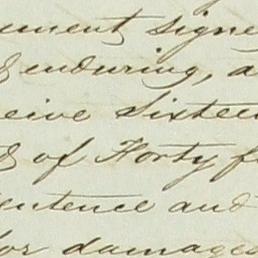 ument signe
& enduring, a
ceive sixteen
& of Forty f
sentence and
for damages